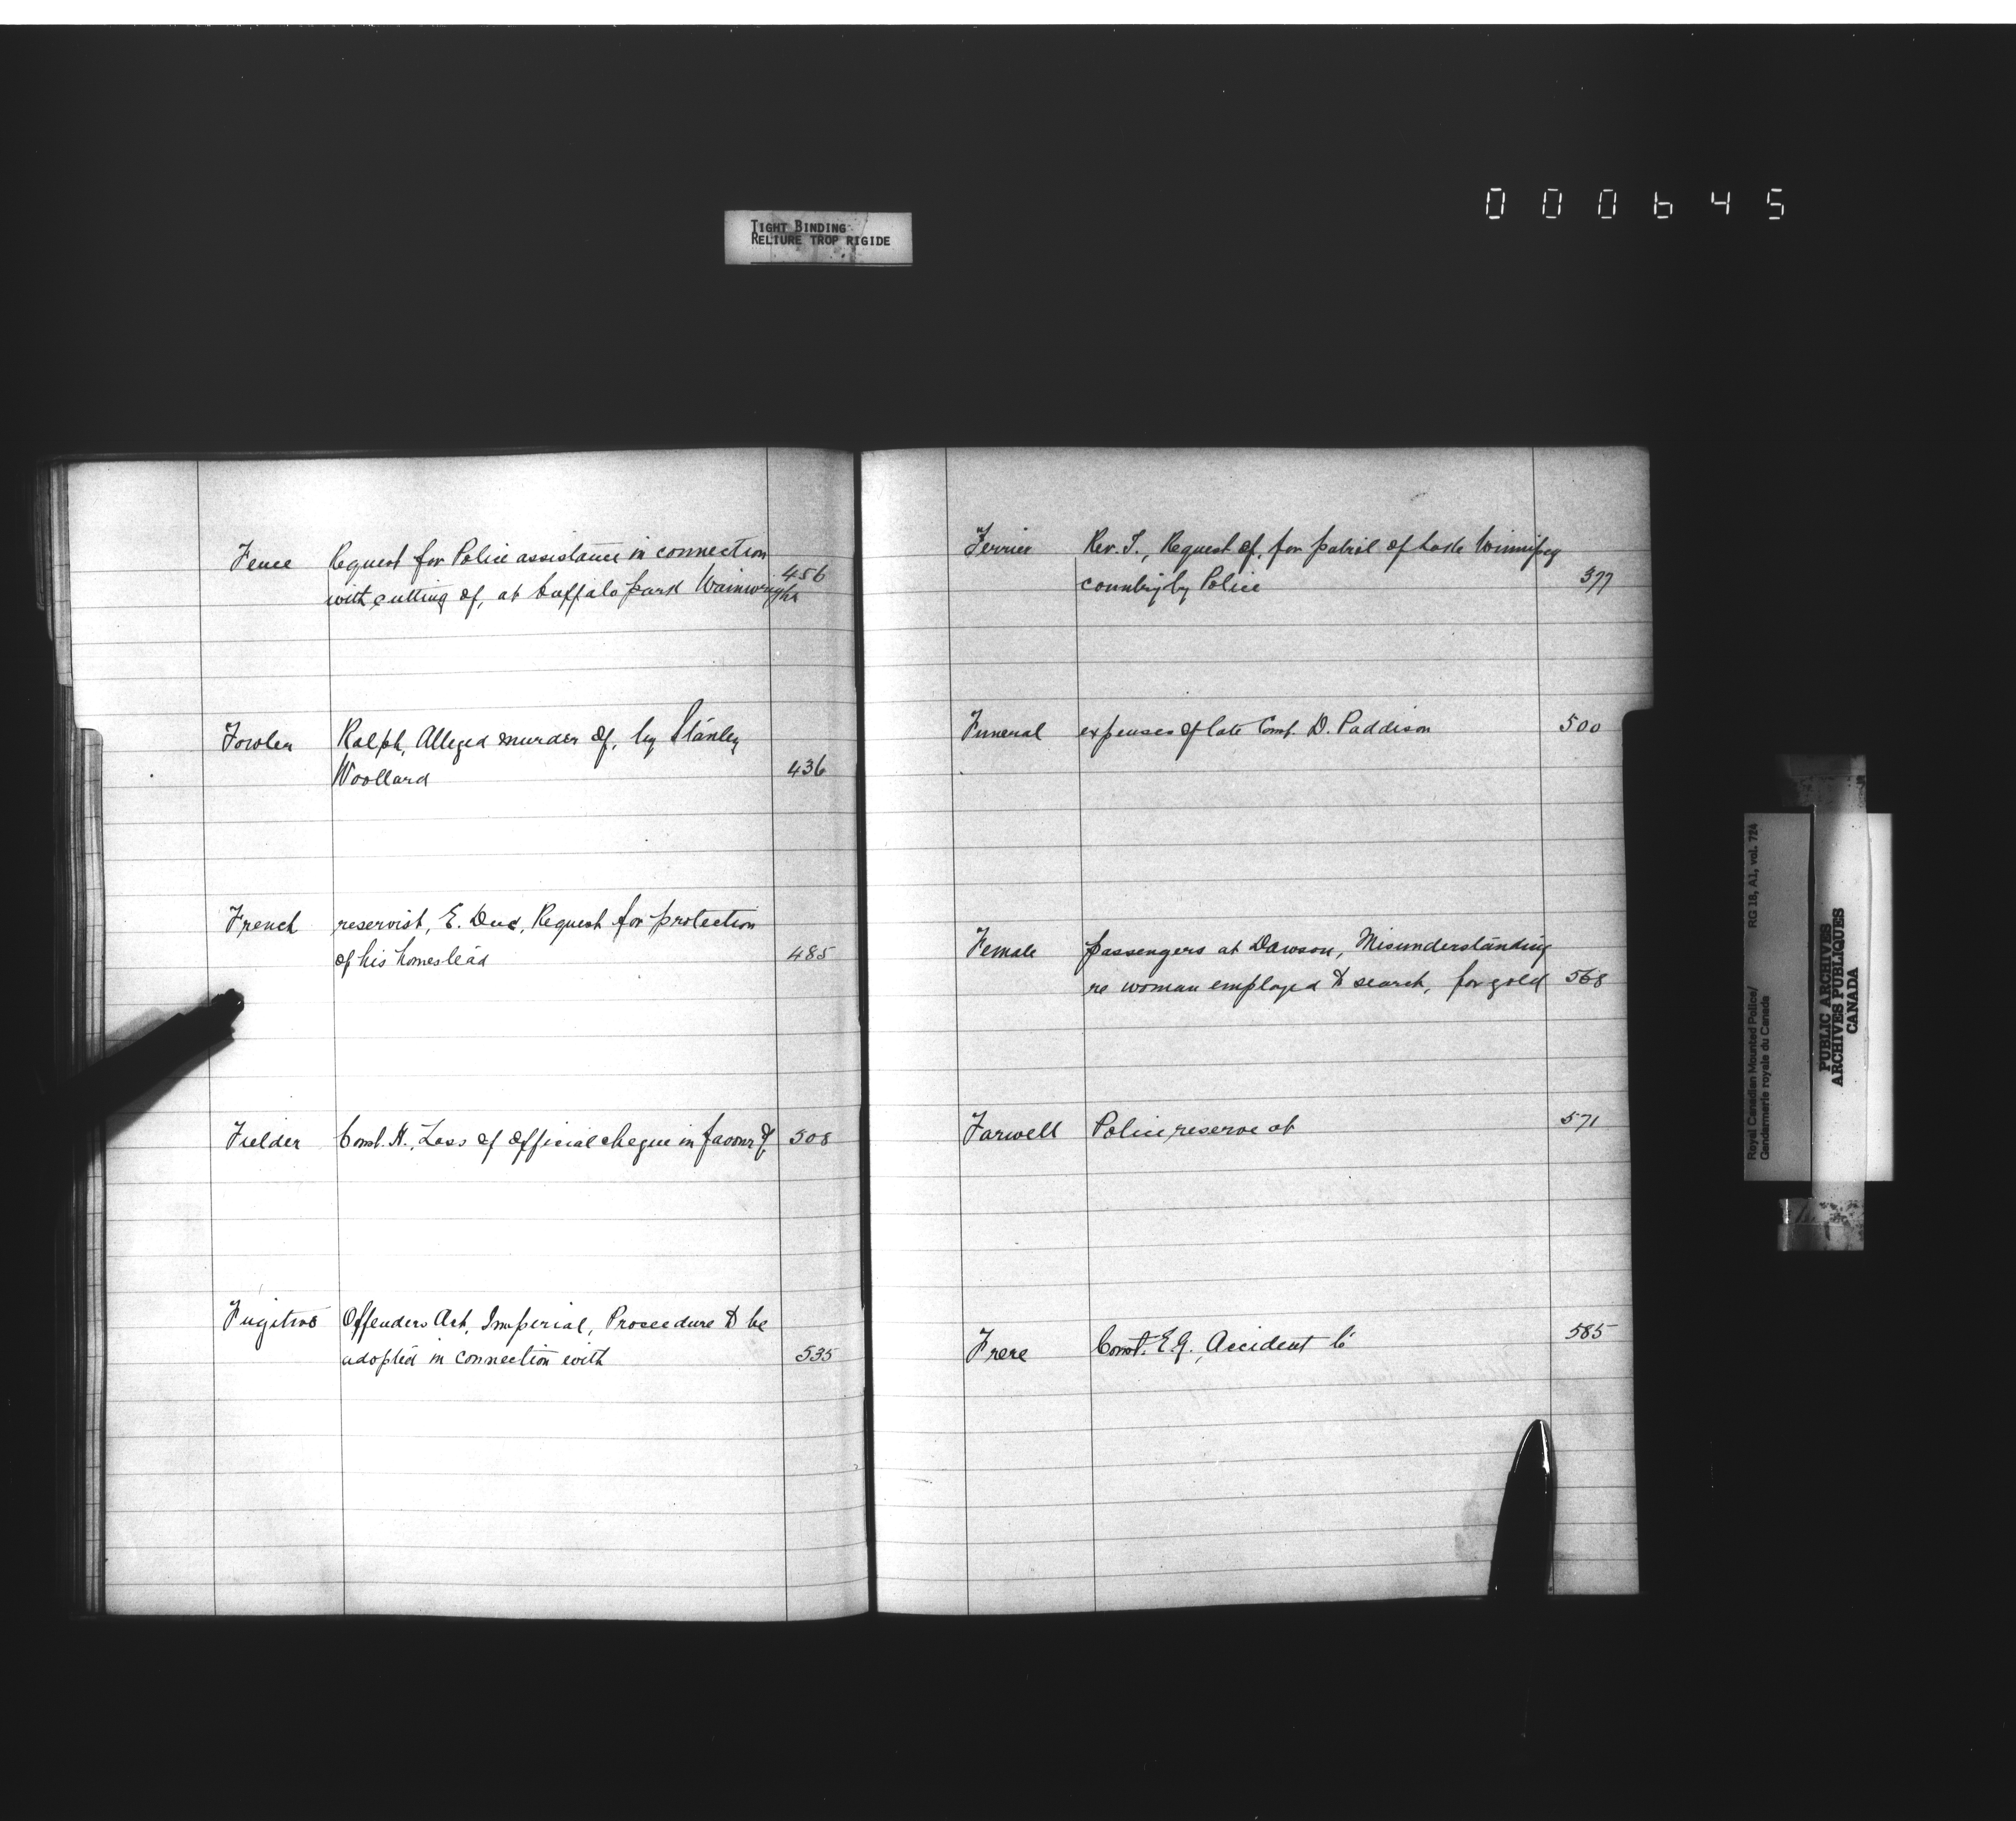 000645
TIGHT BINDING
RELIURE TROP RIGIDE
Fence Request for Police assistance in connection
with cutting of, at buffalo park Wainwright 456
Fowler Ralph, Alleged murder of, by Stanley
Woollard 436
French reservist, E. Duc, Request for protection
of his homestead 485
Fielder Const. H., Loss of official cheque in favour of 508
Fugitive Offenders Act, Imperial, Proceedure to be
adopted in connection with 535
Ferrier Rev. T., Request of, for patrol of Lake Winnipeg
country by Police 377
Funeral expenses of late Const. D. Paddison 500
Female passengers at Dawson, Misunderstanding
re woman employed to search, for gold 568
Farwell Police reserve at 571
Frere Const. E.G., Accident to 585
Royal Canadian Mounted Police/ RG 18, A1, vol. 724
Gendarmerie royale du Canada
PUBLIC ARCHIVES
ARCHIVES PUBLIQUES
CANADA